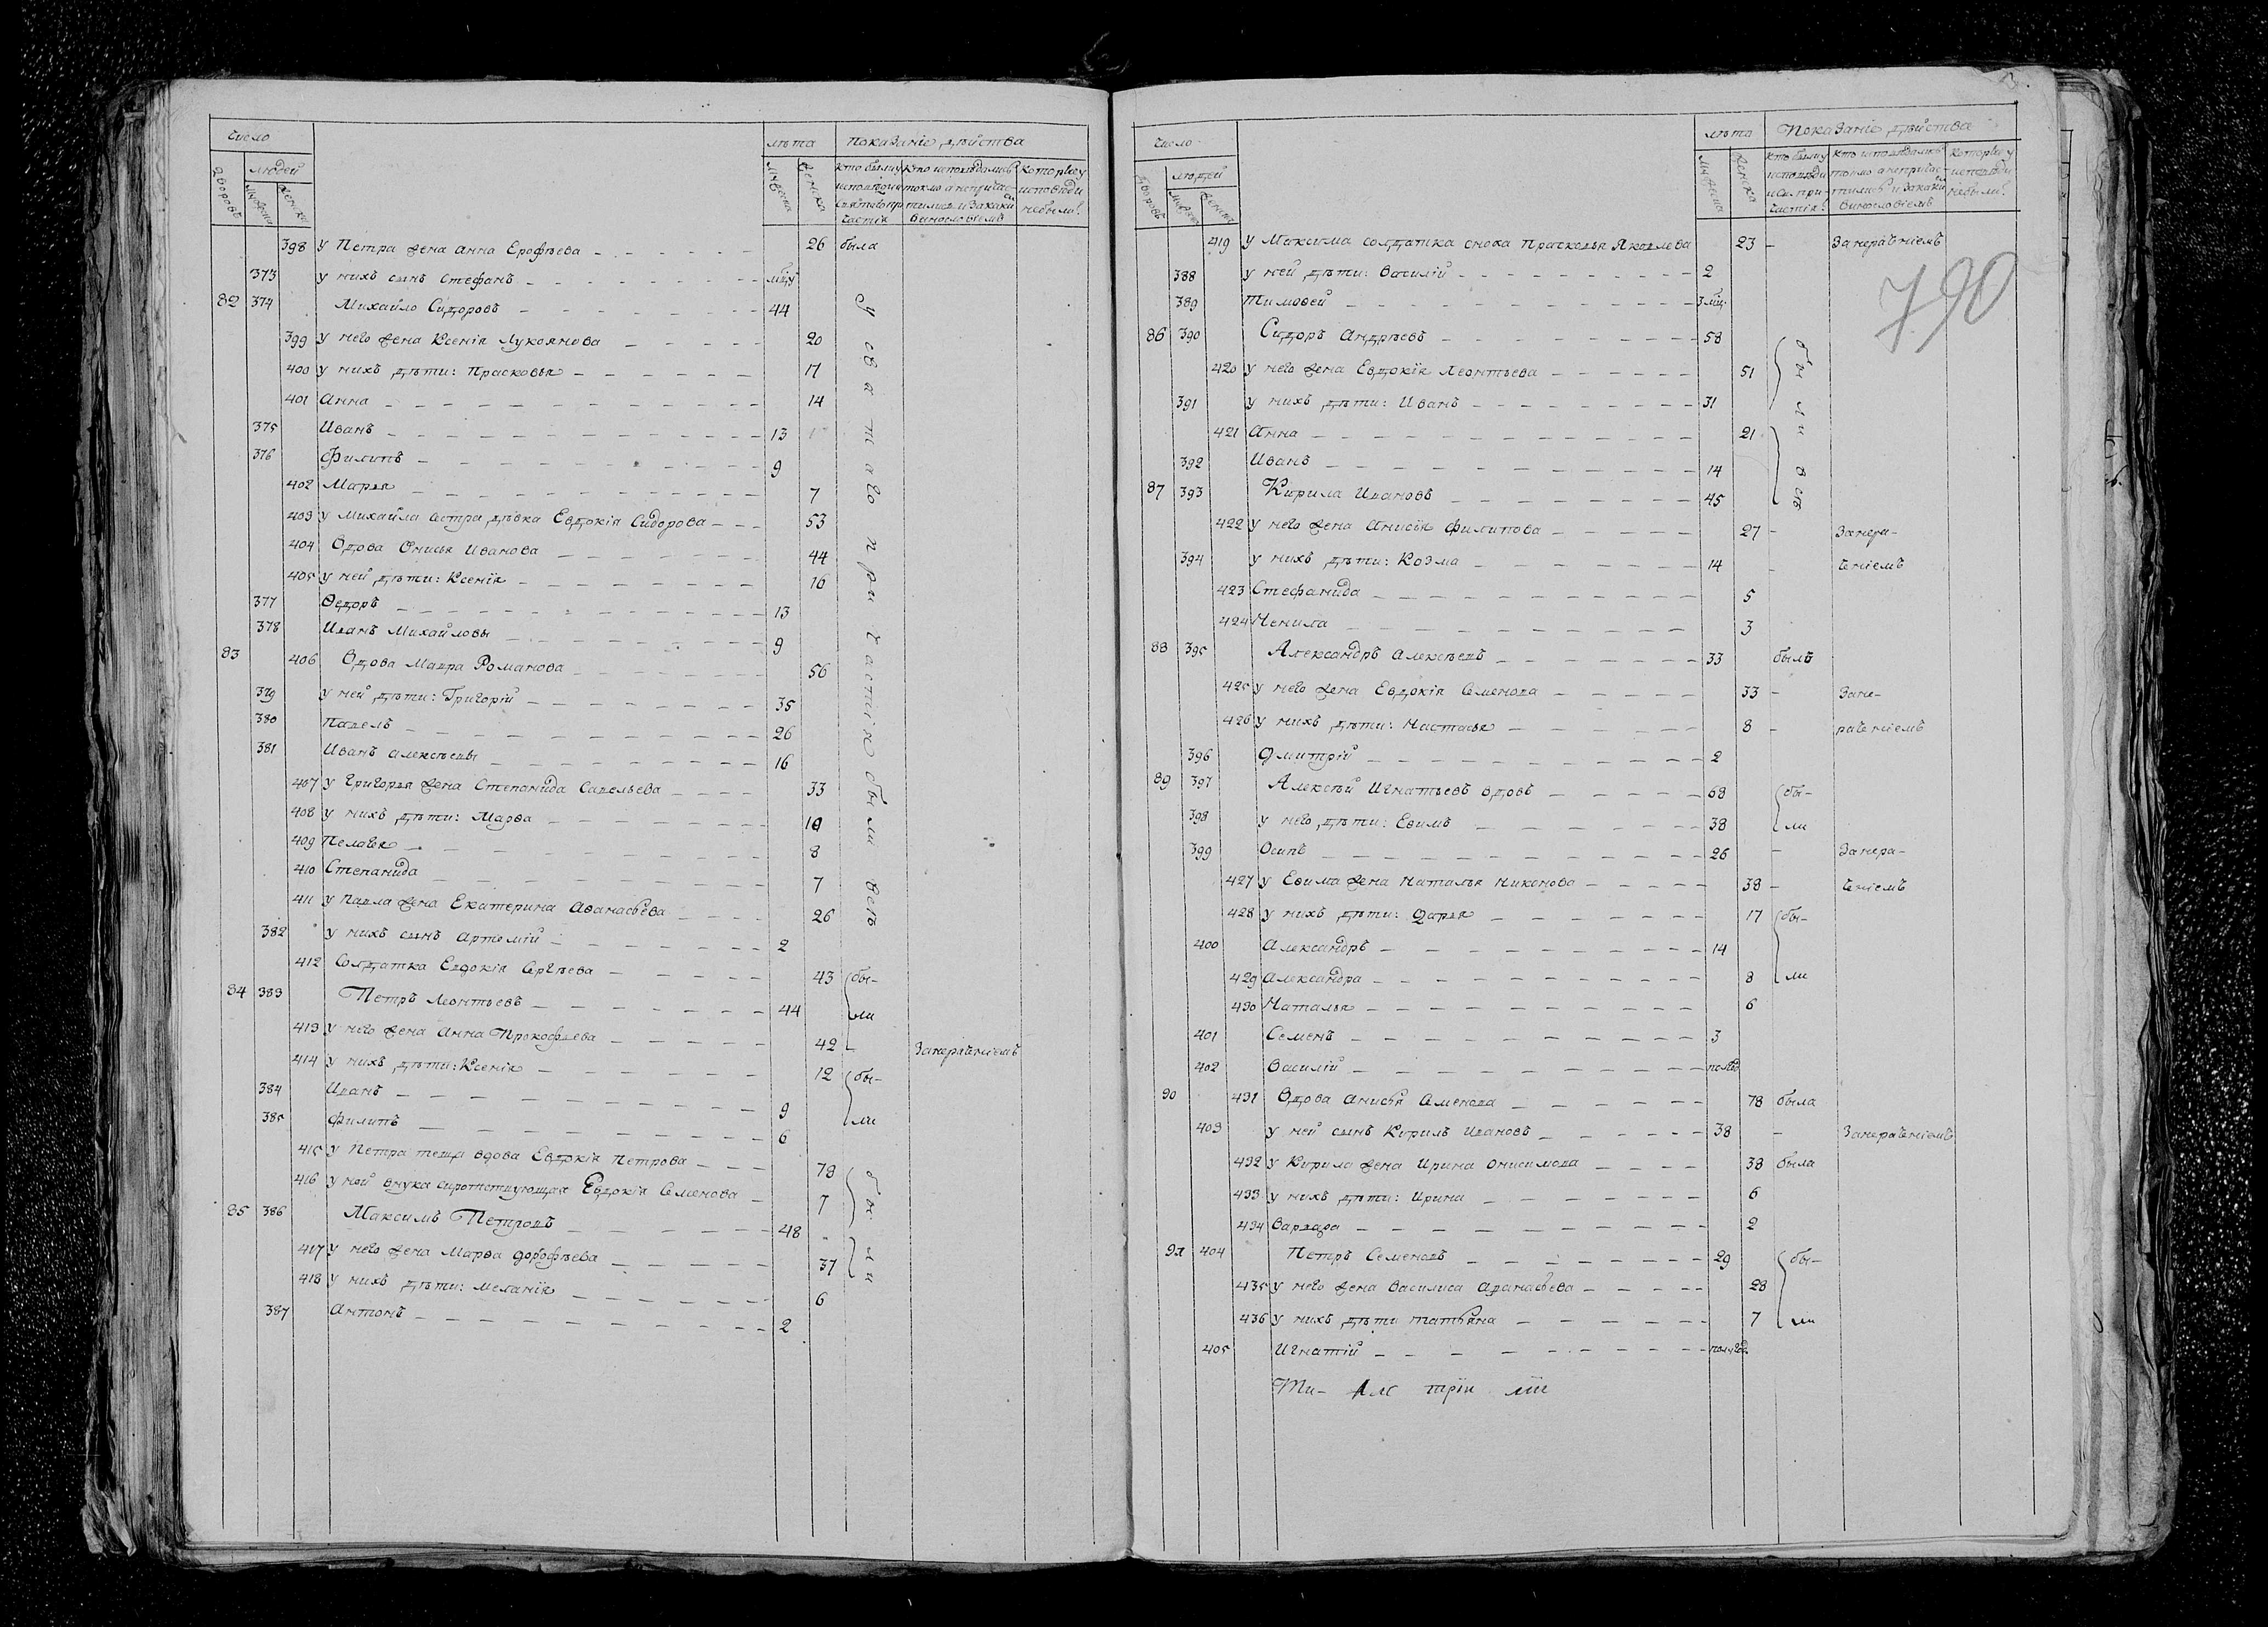 число
людей
дворовъ
мужеска
женска
лѣта
мужеска
женска
Показаніе дѣйства
кто были у исповѣди и святаго причастія
кто исповѣдались токмо а непричастились и за каким винословіемъ
которые у исповѣди небыли.
398 у Петра жена Анна Ерофѣева 26 была
373 у нихъ сынъ Стефанъ
82 374 Михайло Сидоровъ 44
399 у него жена Ксенія Лукоянова 20
400 у нихъ дѣти: Прасковья 17
401 Анна 14
375 Иванъ 13
376 Филипъ 9
402 Марья 7
403 у Михайла сестра дѣвка Евдокія Сидорова 53
404 Вдова Онисья Иванова 44
405 у ней дѣти: Ксенія 16
377 Ѳедоръ 13
378 Иванъ Михайловы 9
83 406 Вдова Мавра Романова 56
379 у ней дѣти: Григорій 35
380 Павелъ 26
381 Иванъ Алексѣевы 16
407 у Григорья жена Степанида Савельева 33
408 у нихъ дѣти: Марѳа 10
409 Пелагея 8
410 Степанида 7
411 у Павла жена Екатерина Аѳанасьева 26
382 у нихъ сынъ Артемій 2
у святаго причастія были всѣ
412 Солдатка Евдокія Сергѣева 43 бы-
84 383 Петръ Леонтьевъ 44 ли
413 у него жена Анна Прокофьева 42 – Занераченіемъ
414 у нихъ дѣти: Ксенія 12 бы-
384 Иванъ 9
385 Филипъ 6 ли
415 у Петра теща вдова Евдокія Петрова 78
416 у ней внука сиротствующая Евдокія Семенова 7
85 386 Максимъ Петровъ 48
417 у него жена Марѳа Дорофѣева 37
были
418 у нихъ дѣти: Меланія 6
387 Антонъ 2
число
людей
дворовъ
мужеска
женска
лѣта
мужеска
женска
Показаніе дѣйства
кто были у исповѣди и св. причастія.
кто исповѣдались токмо а непричастились и за каким винословіемъ
которые у исповѣди небыли.
790
419 у Максима солдатка сноха Прасковья Яковлева 23 – Занераченіемъ
388 у ней дѣти: Василій 2
389 Тимоѳей 3 мѣц.
86 390 Сидоръ Андрѣевъ 58
420 у него жена Евдокія Леонтьева 51
391 у нихъ дѣти: Иванъ 31
421 Анна 21
392 Иванъ 14
87 393 Кирила Ивановъ 45
были всѣ
422 у него жена Анисія Филипова 27 – Занера-
394 у нихъ дѣти: Козма 14 – ченіемъ
423 Стефанида 5
424 Ненила 3
88 395 Александръ Алексѣевъ 33 былъ
425 у него жена Евдокія Семенова 33 – Зане-
426 у нихъ дѣти: Настасья 8 – раченіемъ
396 Дмитрій 2
89 397 Алексѣй Игнатьевъ вдовъ 68 бы-
398 у него дѣти: Еѳимъ 38 ли
399 Осипъ 26 – Занера-
427 у Еѳима жена Наталья Никонова 38 – ченіемъ
428 у нихъ дѣти: Дарья 17 бы-
400 Александръ 14
429 Александра 8 ли
430 Наталья 6
401 Семенъ 3
402 Василій
90 431 Вдова Анисья Семенова 78 была
403 у ней сынъ Кирилъ Ивановъ 38 – Занераченіемъ
432 у Кирила жена Ирина Онисимова 38 была
433 у нихъ дѣти: Ирина 6
434 Варвара 2
91 404 Петръ Семеновъ 29 бы-
435 у него жена Василиса Аѳанасьева 28
436 у нихъ дѣти Татьяна 7 ли
405 Игнатій